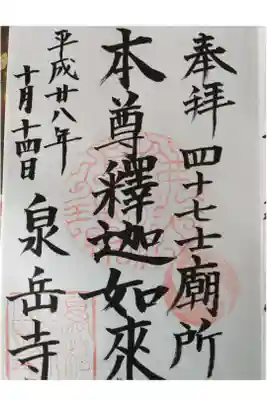 奉拜 四十七士廟所
本尊釋迦如來
平成廿八年
十月十四日
泉岳寺